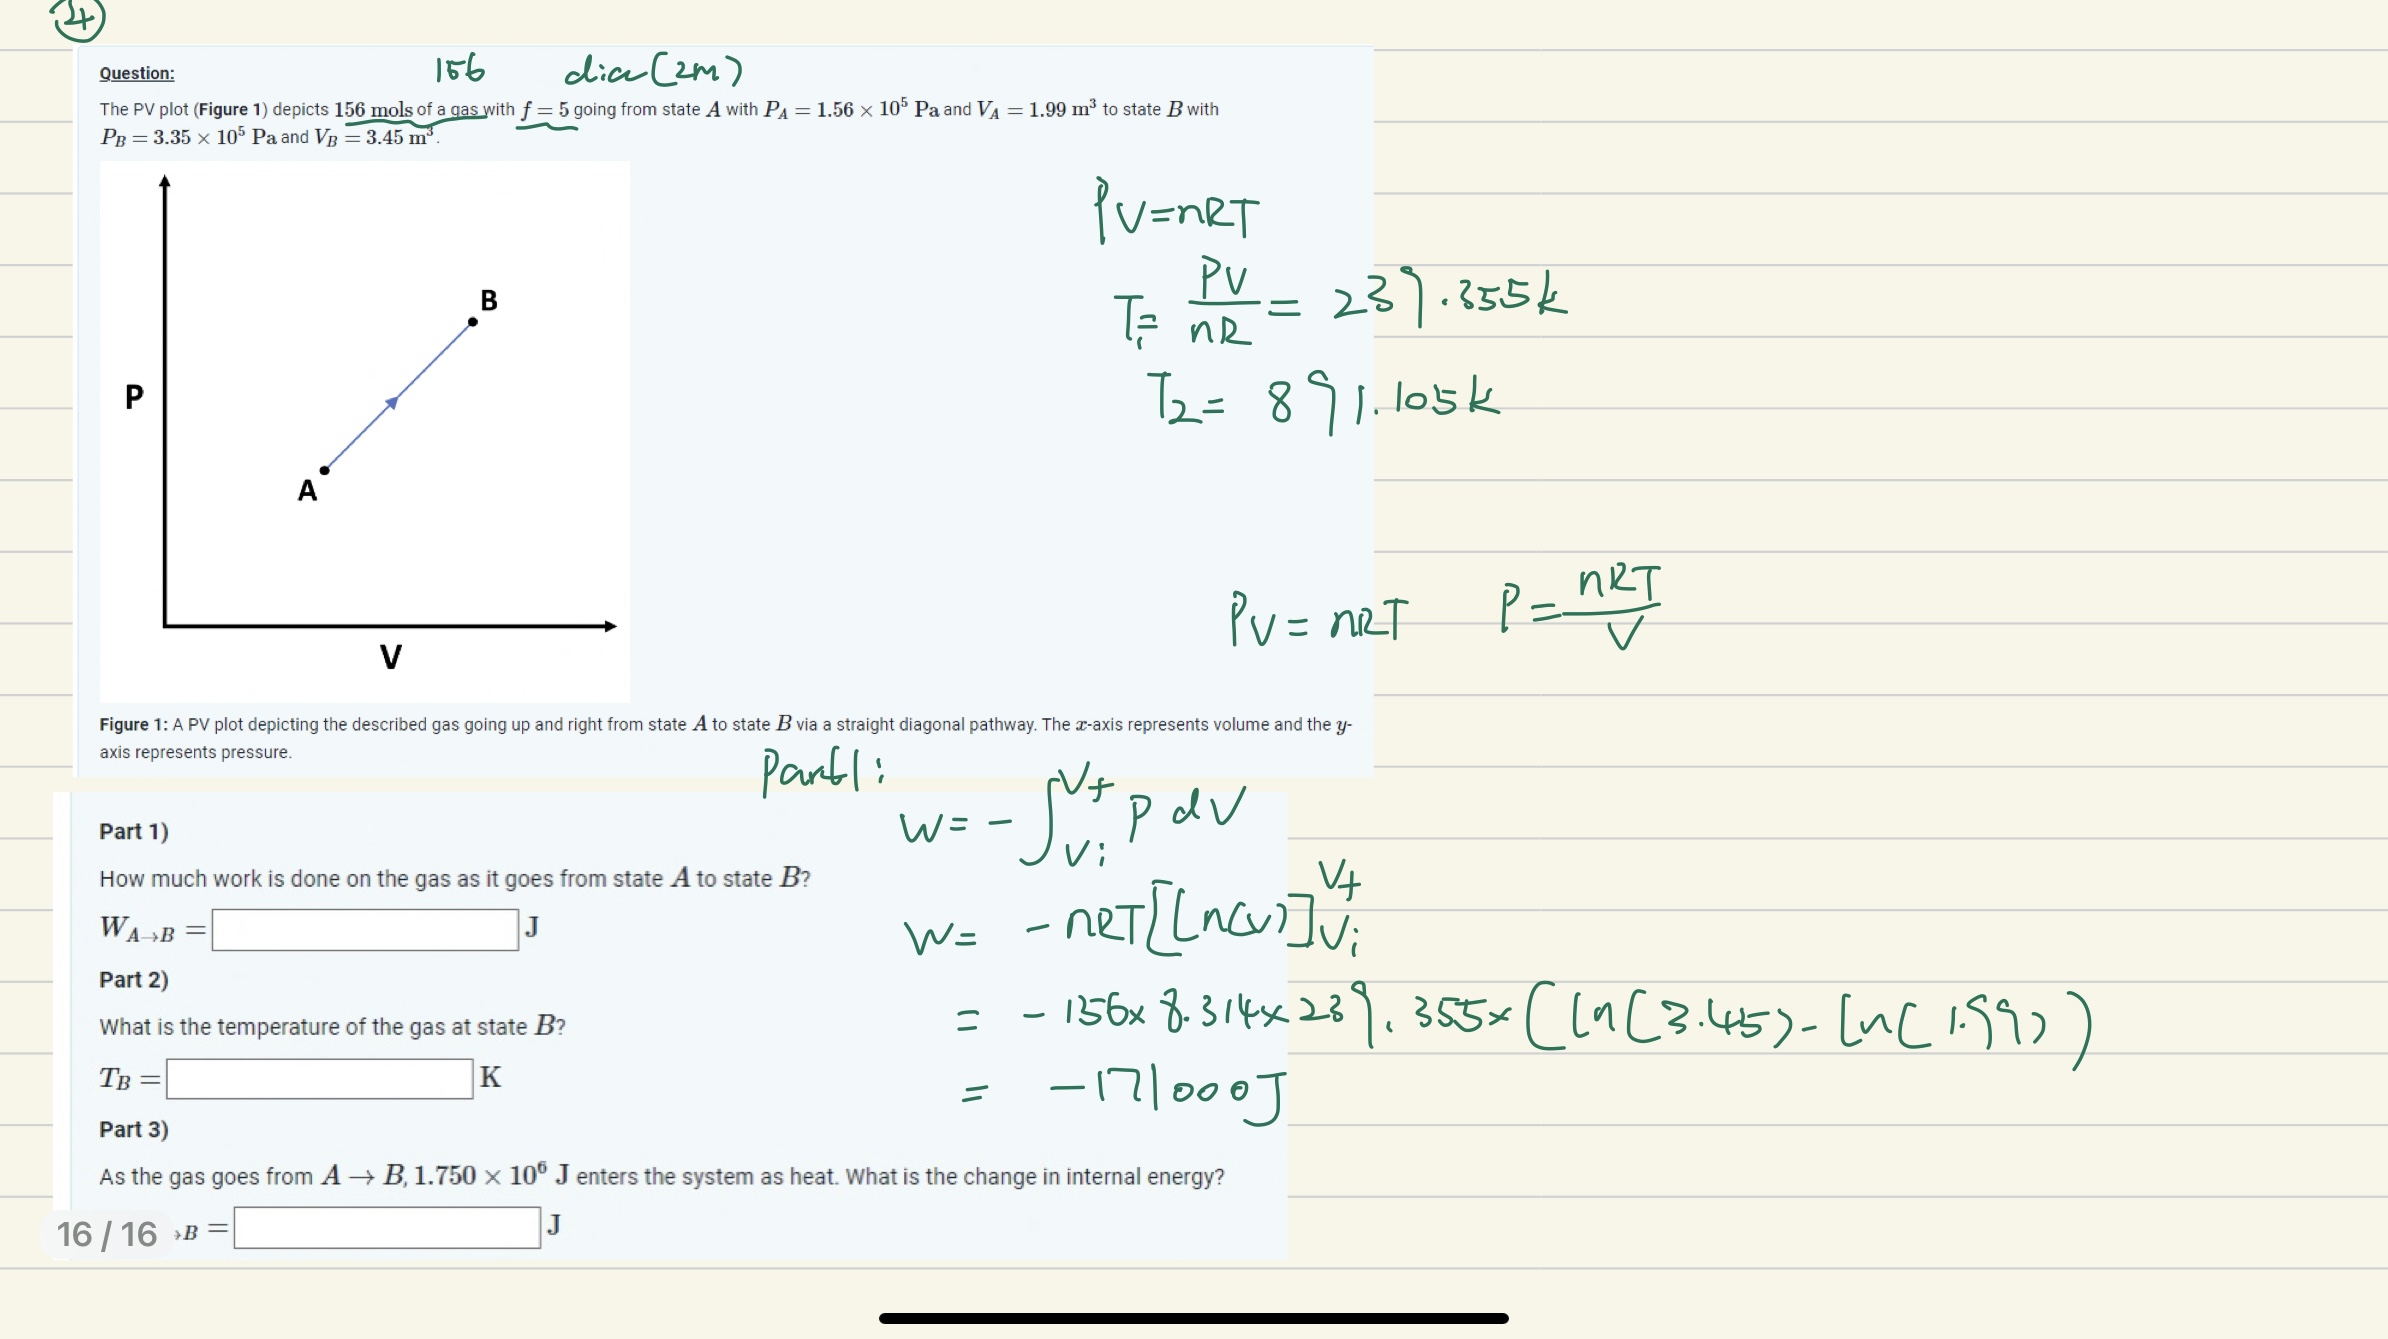 4
156 dia(2m)
Question:
The PV plot (Figure 1) depicts 156 mols of a gas with f = 5 going from state A with P_A = 1.56 × 10⁵ Pa and V_A = 1.99 m³ to state B with
P_B = 3.35 × 10⁵ Pa and V_B = 3.45 m³.
PV=nRT
T₁= PV/nR = 239.355k
T₂= 891.105k
B
P
A
V
PV= nRT P= nRT/V
Figure 1: A PV plot depicting the described gas going up and right from state A to state B via a straight diagonal pathway. The x-axis represents volume and the y-
axis represents pressure.
Part1:
W= - ∫_{Vi}^{Vf} P dV
W= - nRT[ln(v)]_{Vi}^{Vf}
= - 156× 8.314× 239.355× (ln(3.45)- ln(1.99))
= -171000J
Part 1)
How much work is done on the gas as it goes from state A to state B?
W_{A→B} = J
Part 2)
What is the temperature of the gas at state B?
T_B = K
Part 3)
As the gas goes from A → B, 1.750 × 10⁶ J enters the system as heat. What is the change in internal energy?
16 / 16 →B = J